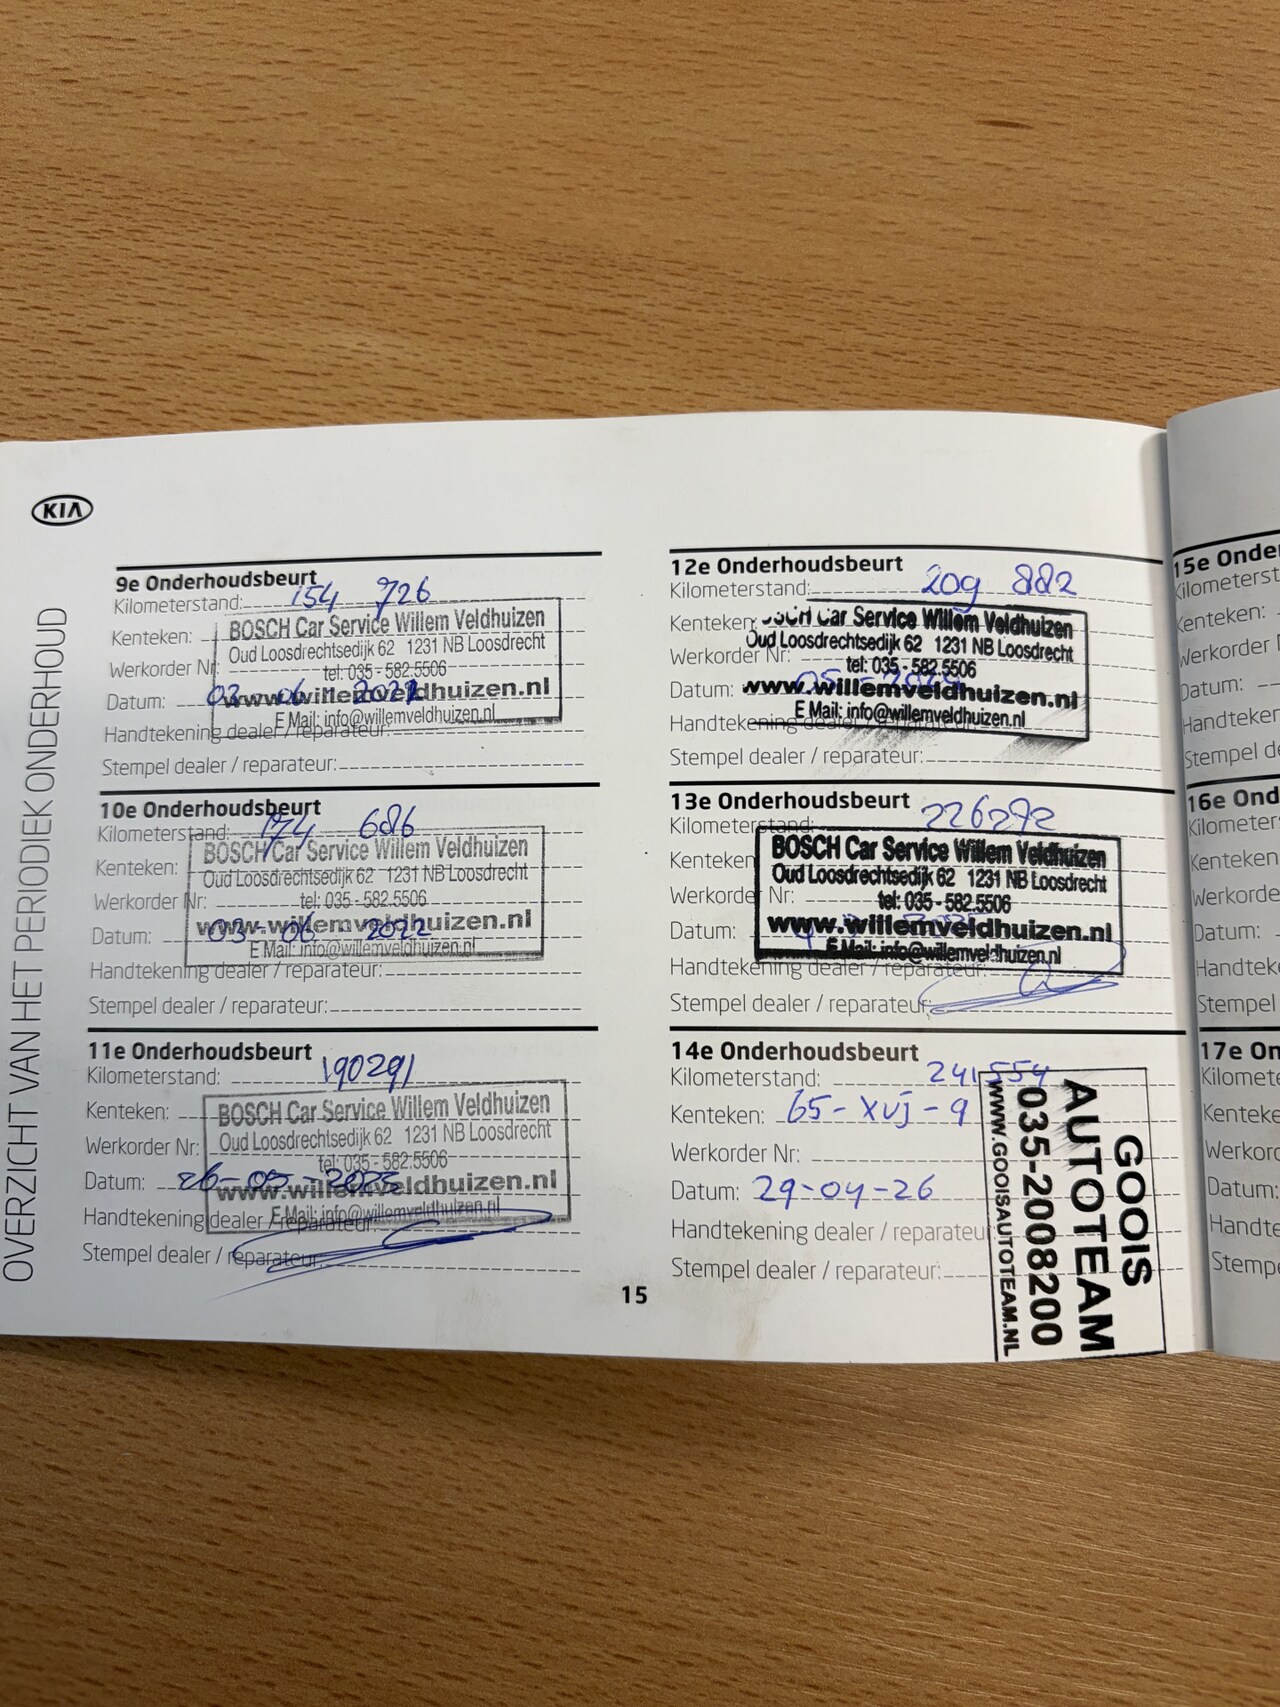 KIA
OVERZICHT VAN HET PERIODIEK ONDERHOUD
9e Onderhoudsbeurt
Kilometerstand: 154 726
Kenteken:
BOSCH Car Service Willem Veldhuizen
Oud Loosdrechtsedijk 62 1231 NB Loosdrecht
Werkorder Nr:
tel: 035 - 582.5506
Datum: 03-06-
www.willemveldhuizen.nl
E Mail: info@willemveldhuizen.nl
Handtekening dealer / reparateur:
Stempel dealer / reparateur:
10e Onderhoudsbeurt
Kilometerstand: 174 686
BOSCH Car Service Willem Veldhuizen
Kenteken:
Oud Loosdrechtsedijk 62 1231 NB Loosdrecht
Werkorder Nr:
tel: 035 - 582.5506
www.willemveldhuizen.nl
Datum: 03-06-2022
E Mail: info@willemveldhuizen.nl
Handtekening dealer / reparateur:
Stempel dealer / reparateur:
11e Onderhoudsbeurt
Kilometerstand: 190291
Kenteken:
BOSCH Car Service Willem Veldhuizen
Oud Loosdrechtsedijk 62 1231 NB Loosdrecht
Werkorder Nr:
tel: 035 - 582.5506
Datum: 26-05-2023
www.willemveldhuizen.nl
E Mail: info@willemveldhuizen.nl
Handtekening dealer / reparateur:
Stempel dealer / reparateur:
12e Onderhoudsbeurt
Kilometerstand: 209 882
Kenteken:
Car Service Willem Veldhuizen
Oud Loosdrechtsedijk 62 1231 NB Loosdrecht
Werkorder Nr:
tel: 035 - 582.5506
Datum:
www.willemveldhuizen.nl
E Mail: info@willemveldhuizen.nl
Handtekening dealer / reparateur:
Stempel dealer / reparateur:
13e Onderhoudsbeurt
Kilometerstand: 226292
BOSCH Car Service Willem Veldhuizen
Kenteken:
Oud Loosdrechtsedijk 62 1231 NB Loosdrecht
Werkorder Nr:
tel: 035 - 582.5506
Datum:
www.willemveldhuizen.nl
E Mail: info@willemveldhuizen.nl
Handtekening dealer / reparateur:
Stempel dealer / reparateur:
14e Onderhoudsbeurt
Kilometerstand: 241554
Kenteken: 65-XVJ-9
Werkorder Nr:
Datum: 29-04-26
Handtekening dealer / reparateu
Stempel dealer / reparateur:
GOOIS
AUTOTEAM
035-2008200
WWW.GOOISAUTOTEAM.NL
15
15e Onde
Kilometerst
Kenteken:
Werkorder
Datum:
Handteken
Stempel de
16e Ond
Kilometer
Kenteken
Werkorde
Datum:
Handteke
Stempel
17e On
Kilomete
Kenteke
Werkor
Datum:
Handte
Stemp